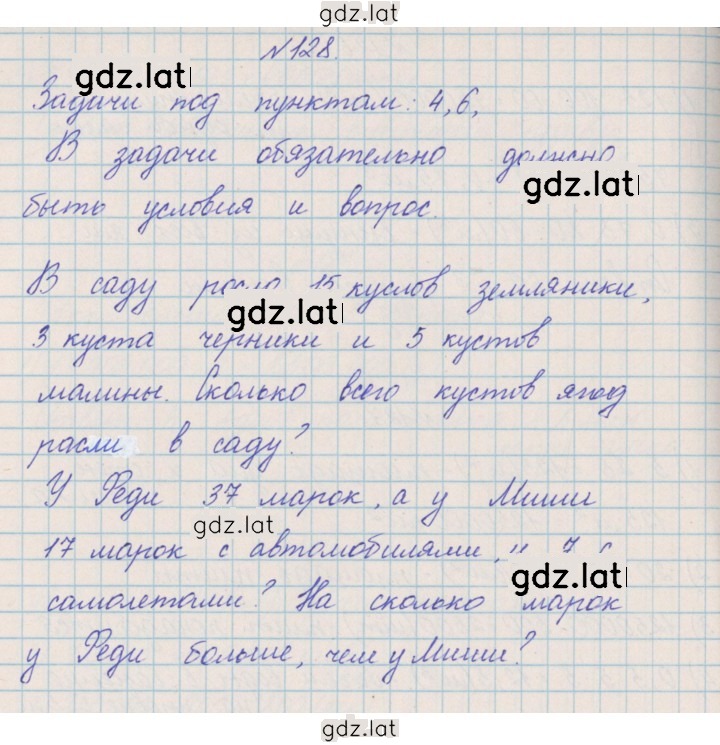 gdz.lat
№128.
gdz.lat
Задачи под пунктам: 4,6,
В задачи обязательно должно
gdz.lat
быть условия и вопрос.
В саду росло 15 куслов земляники,
gdz.lat
3 куста черники и 5 кустов
малины. Сколько всего кустов ягод
расли в саду?
У Феди 37 марок, а у Миши
gdz.lat
17 марок с автомобилями, и 7 с
gdz.lat
самолетами? На сколько марок
у Феди больше, чем у Миши?
gdz.lat